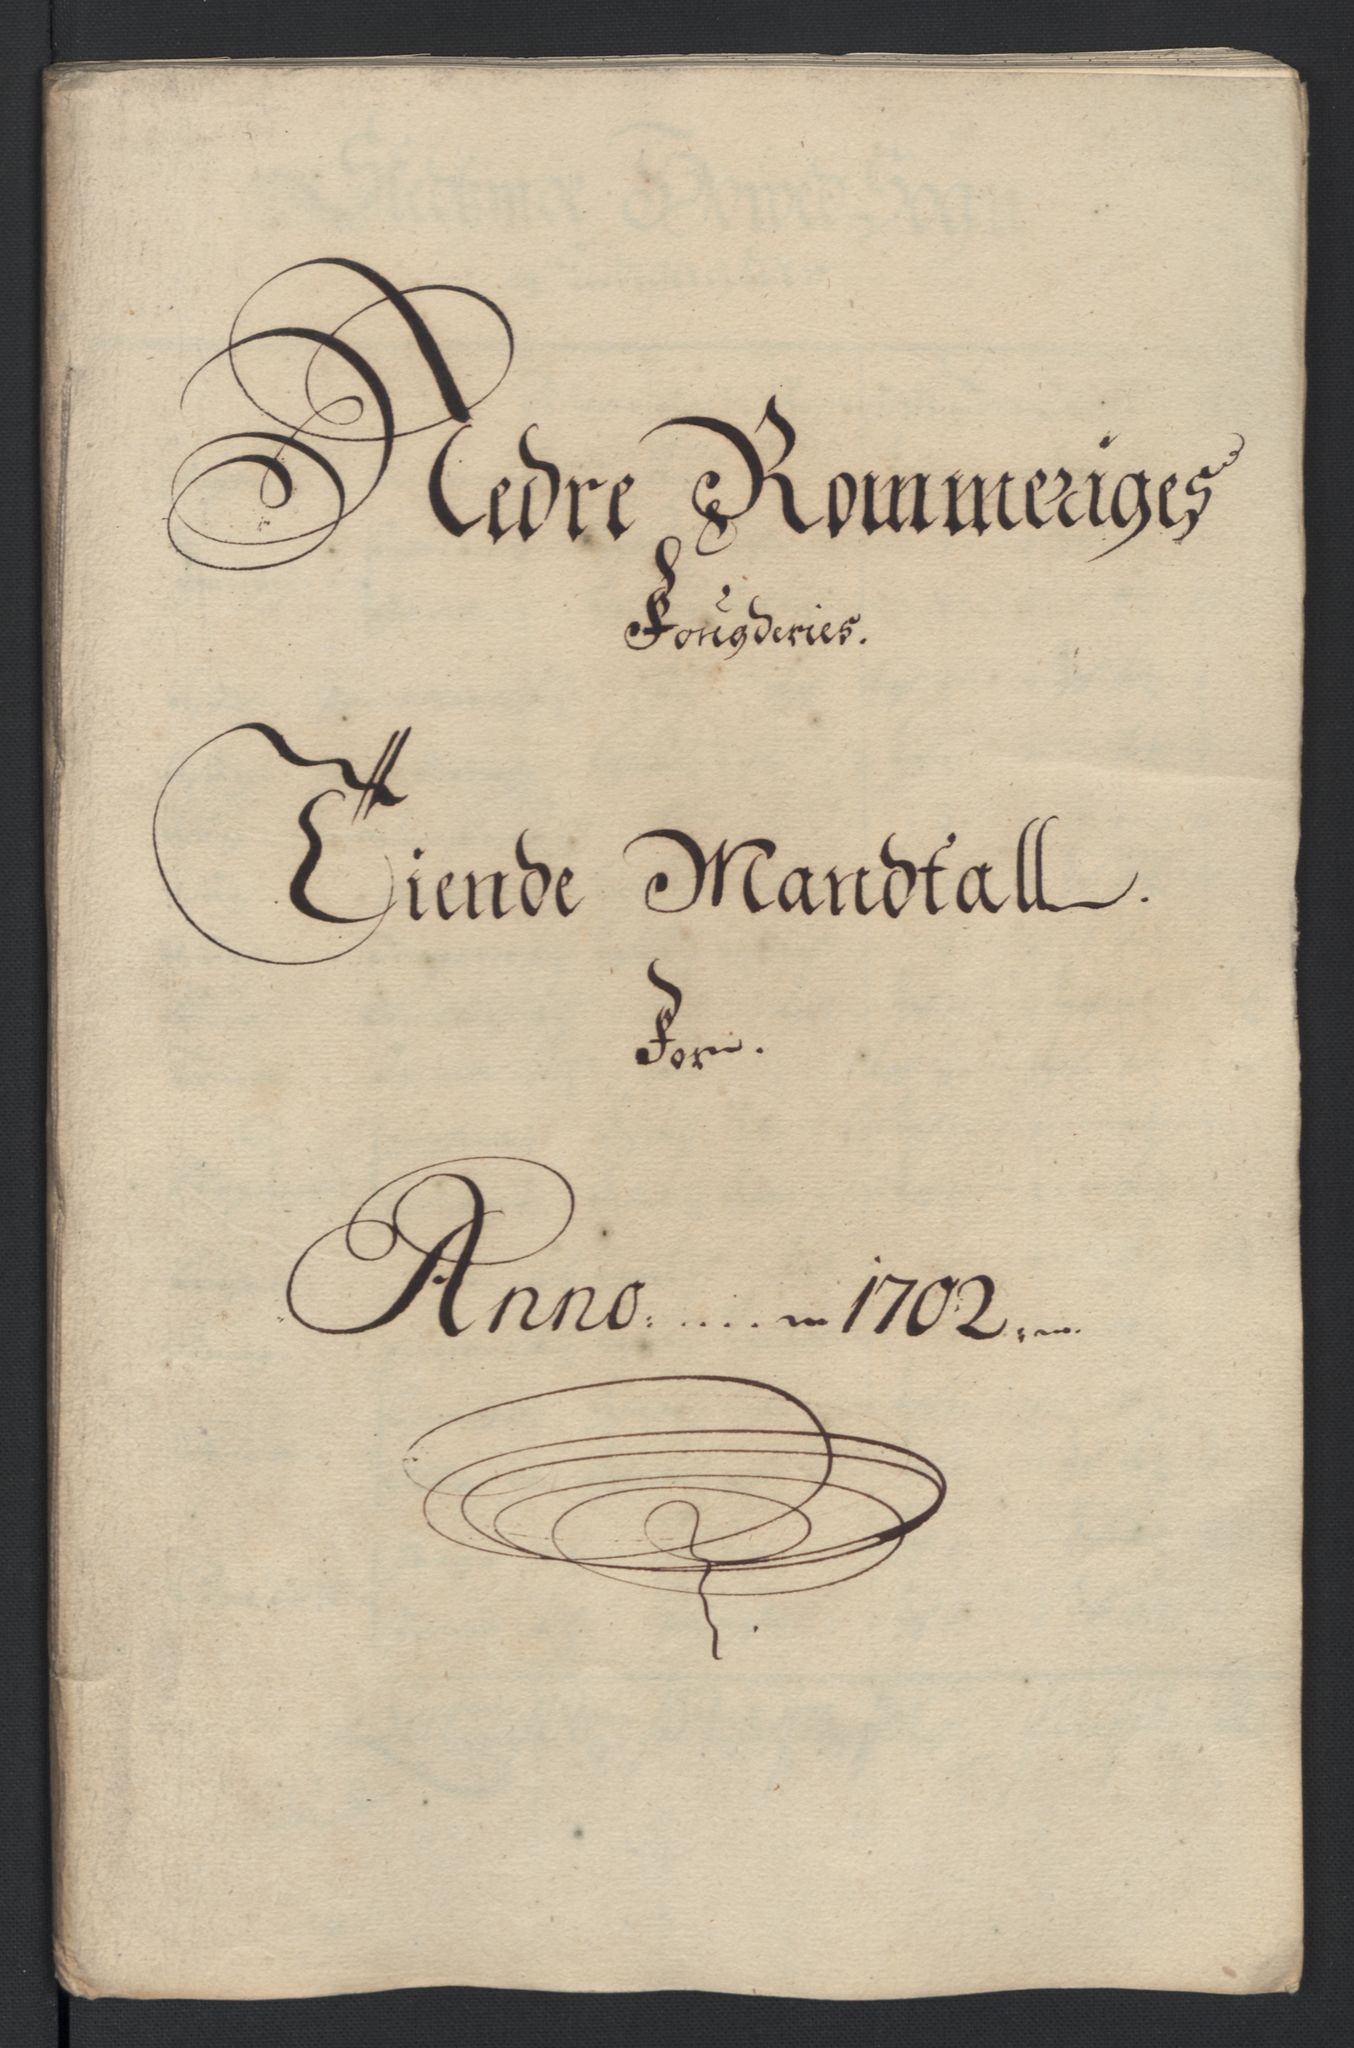 Nedre Rommeriges
Fougderies.
Tiende Mandtall.
For.
Anno: .... 1702.